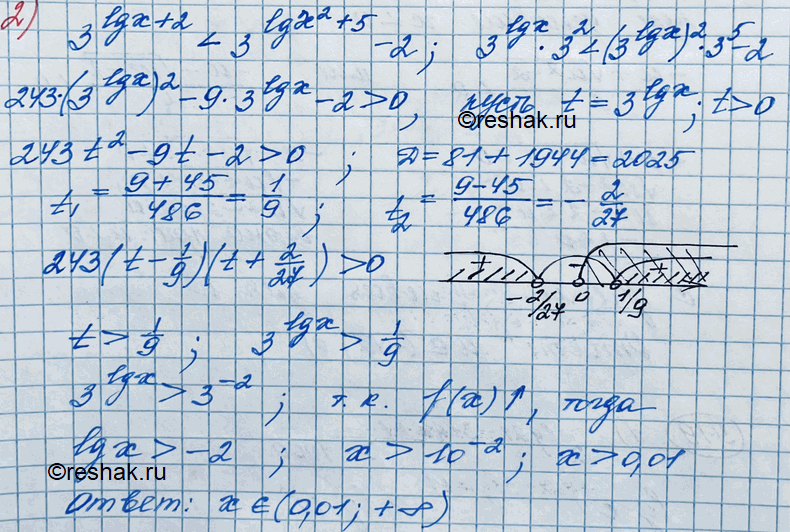 2)
3^(lgx+2) < 3^(lgx²+5) -2; 3^(lgx) · 3² < (3^(lgx))² · 3⁵ -2
243·(3^(lgx))² - 9·3^(lgx) - 2 > 0, пусть t = 3^(lgx); t>0
©reshak.ru
243t² - 9t - 2 > 0; Д = 81 + 1944 = 2025
t₁ = (9+45)/486 = 1/9; t₂ = (9-45)/486 = -2/27
243(t - 1/9)(t + 2/27) > 0
+ - +
-2/27 0 1/9
t > 1/9; 3^(lgx) > 1/9
3^(lgx) > 3⁻²; т.к. f(x)↑, тогда
lgx > -2; x > 10⁻²; x > 0,01
©reshak.ru
Ответ: x ∈ (0,01; +∞)